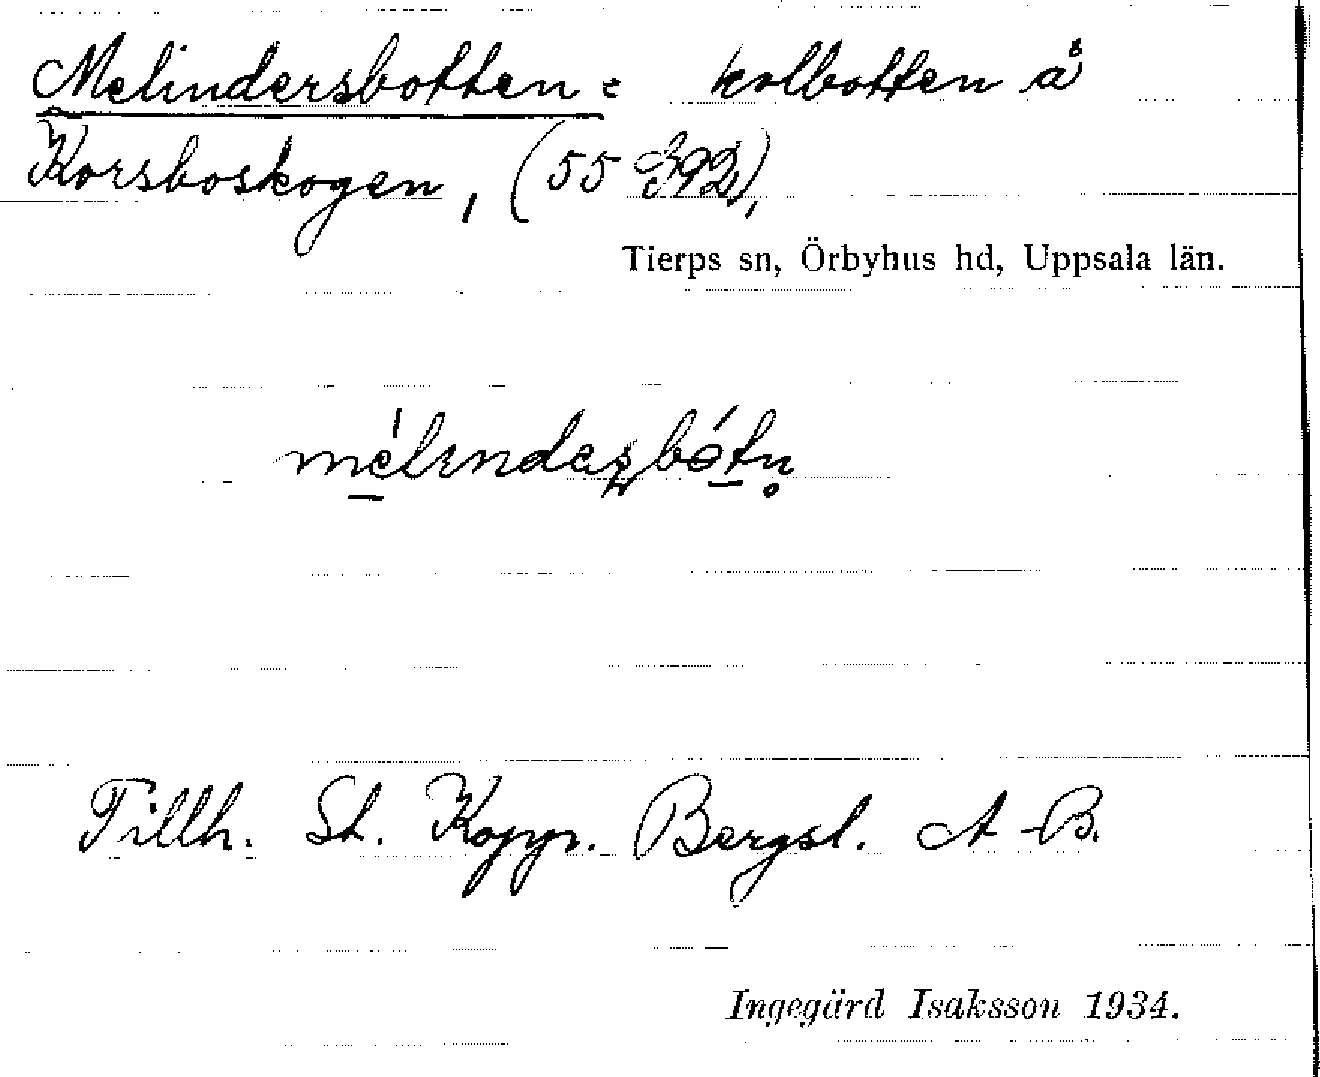 Melindersbotten: kolbotten å
Korsboskogen, (55 392),
Tierps sn, Örbyhus hd, Uppsala län.
Tillh. St. Kopp. Bergsl. A-B.
Ingegärd Isaksson 1934.